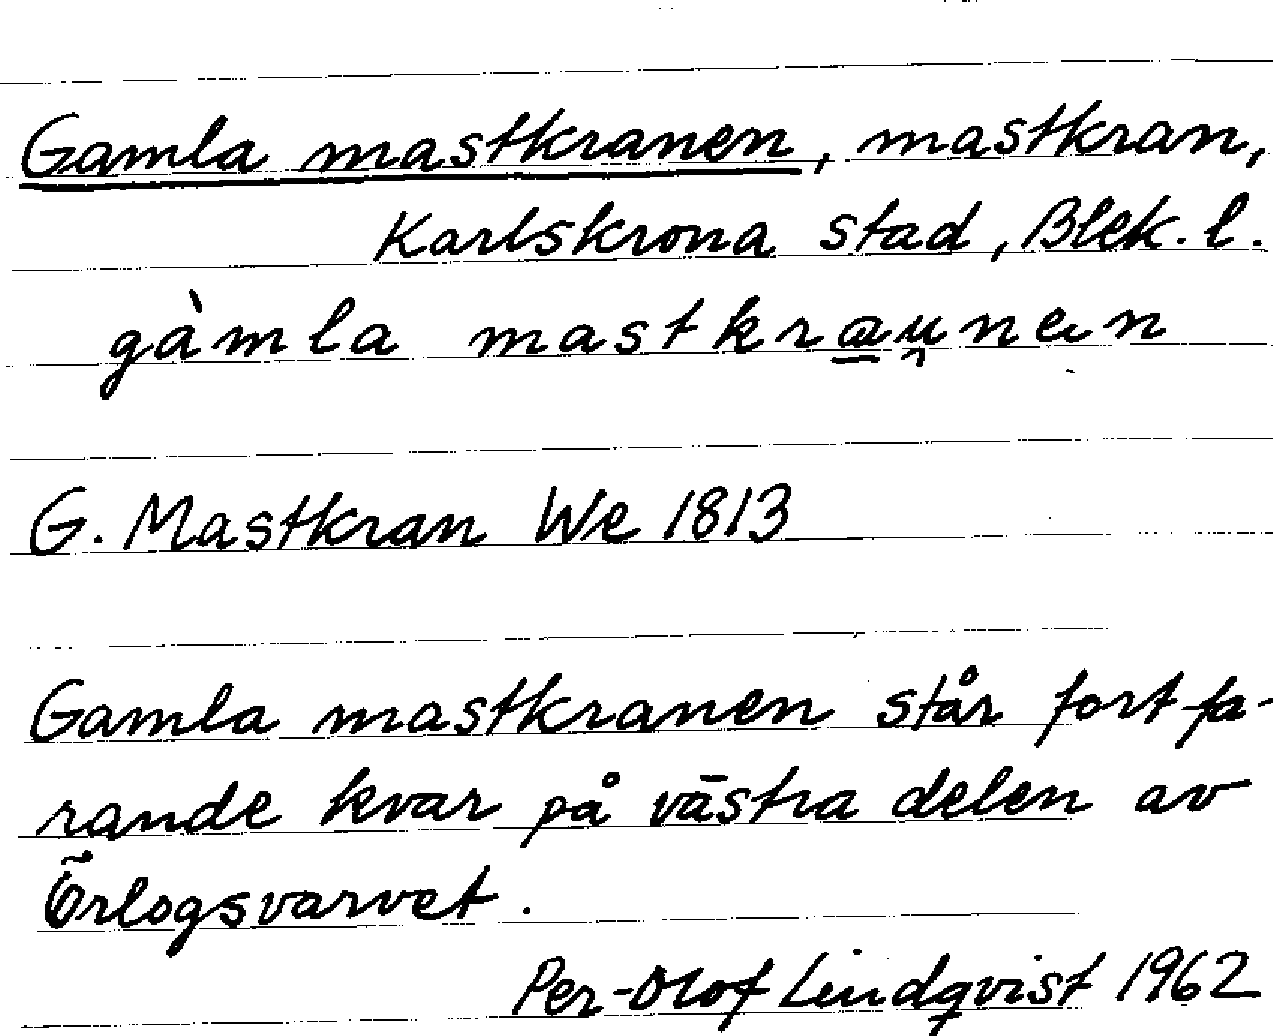 Gamla mastkranen, mastkran,
Karlskrona stad, Blek. l.
gàmla mastkra̲u̯nen
G. Mastkran We 1813
Gamla mastkranen står fortfa-
rande kvar på västra delen av
Örlogsvarvet.
Per-Olof Lindqvist 1962